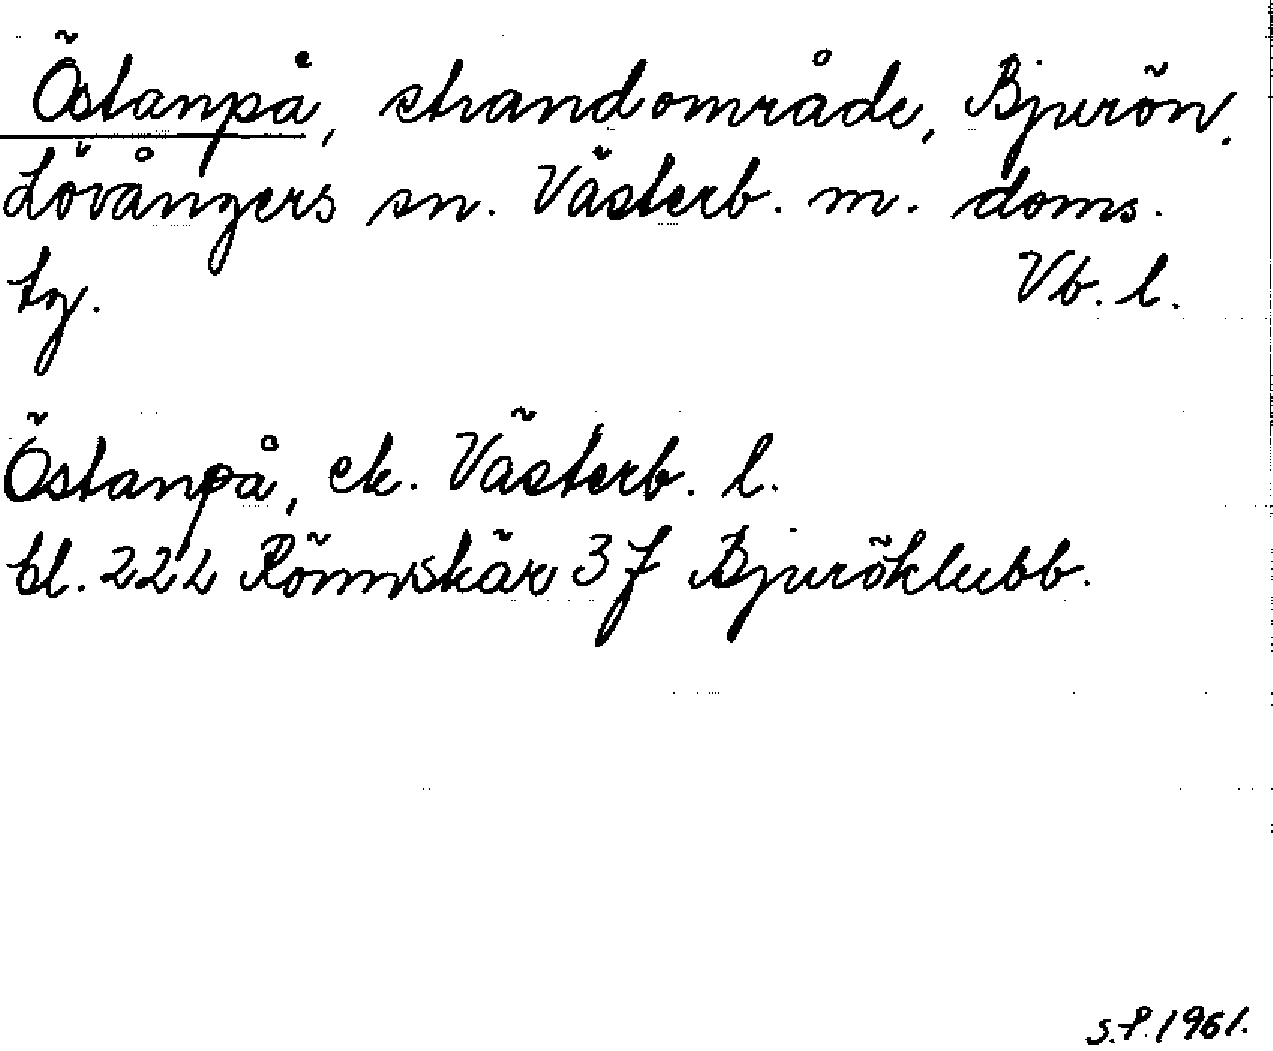 Östanpå, strandområde, Bjurön.
Lövångers sn. Västerb. m. doms.
tg. Vb. l.
Östanpå, ek. Västerb. l.
bl. 222 Rönnskär 3 f Bjuröklubb.
S.P. 1961.